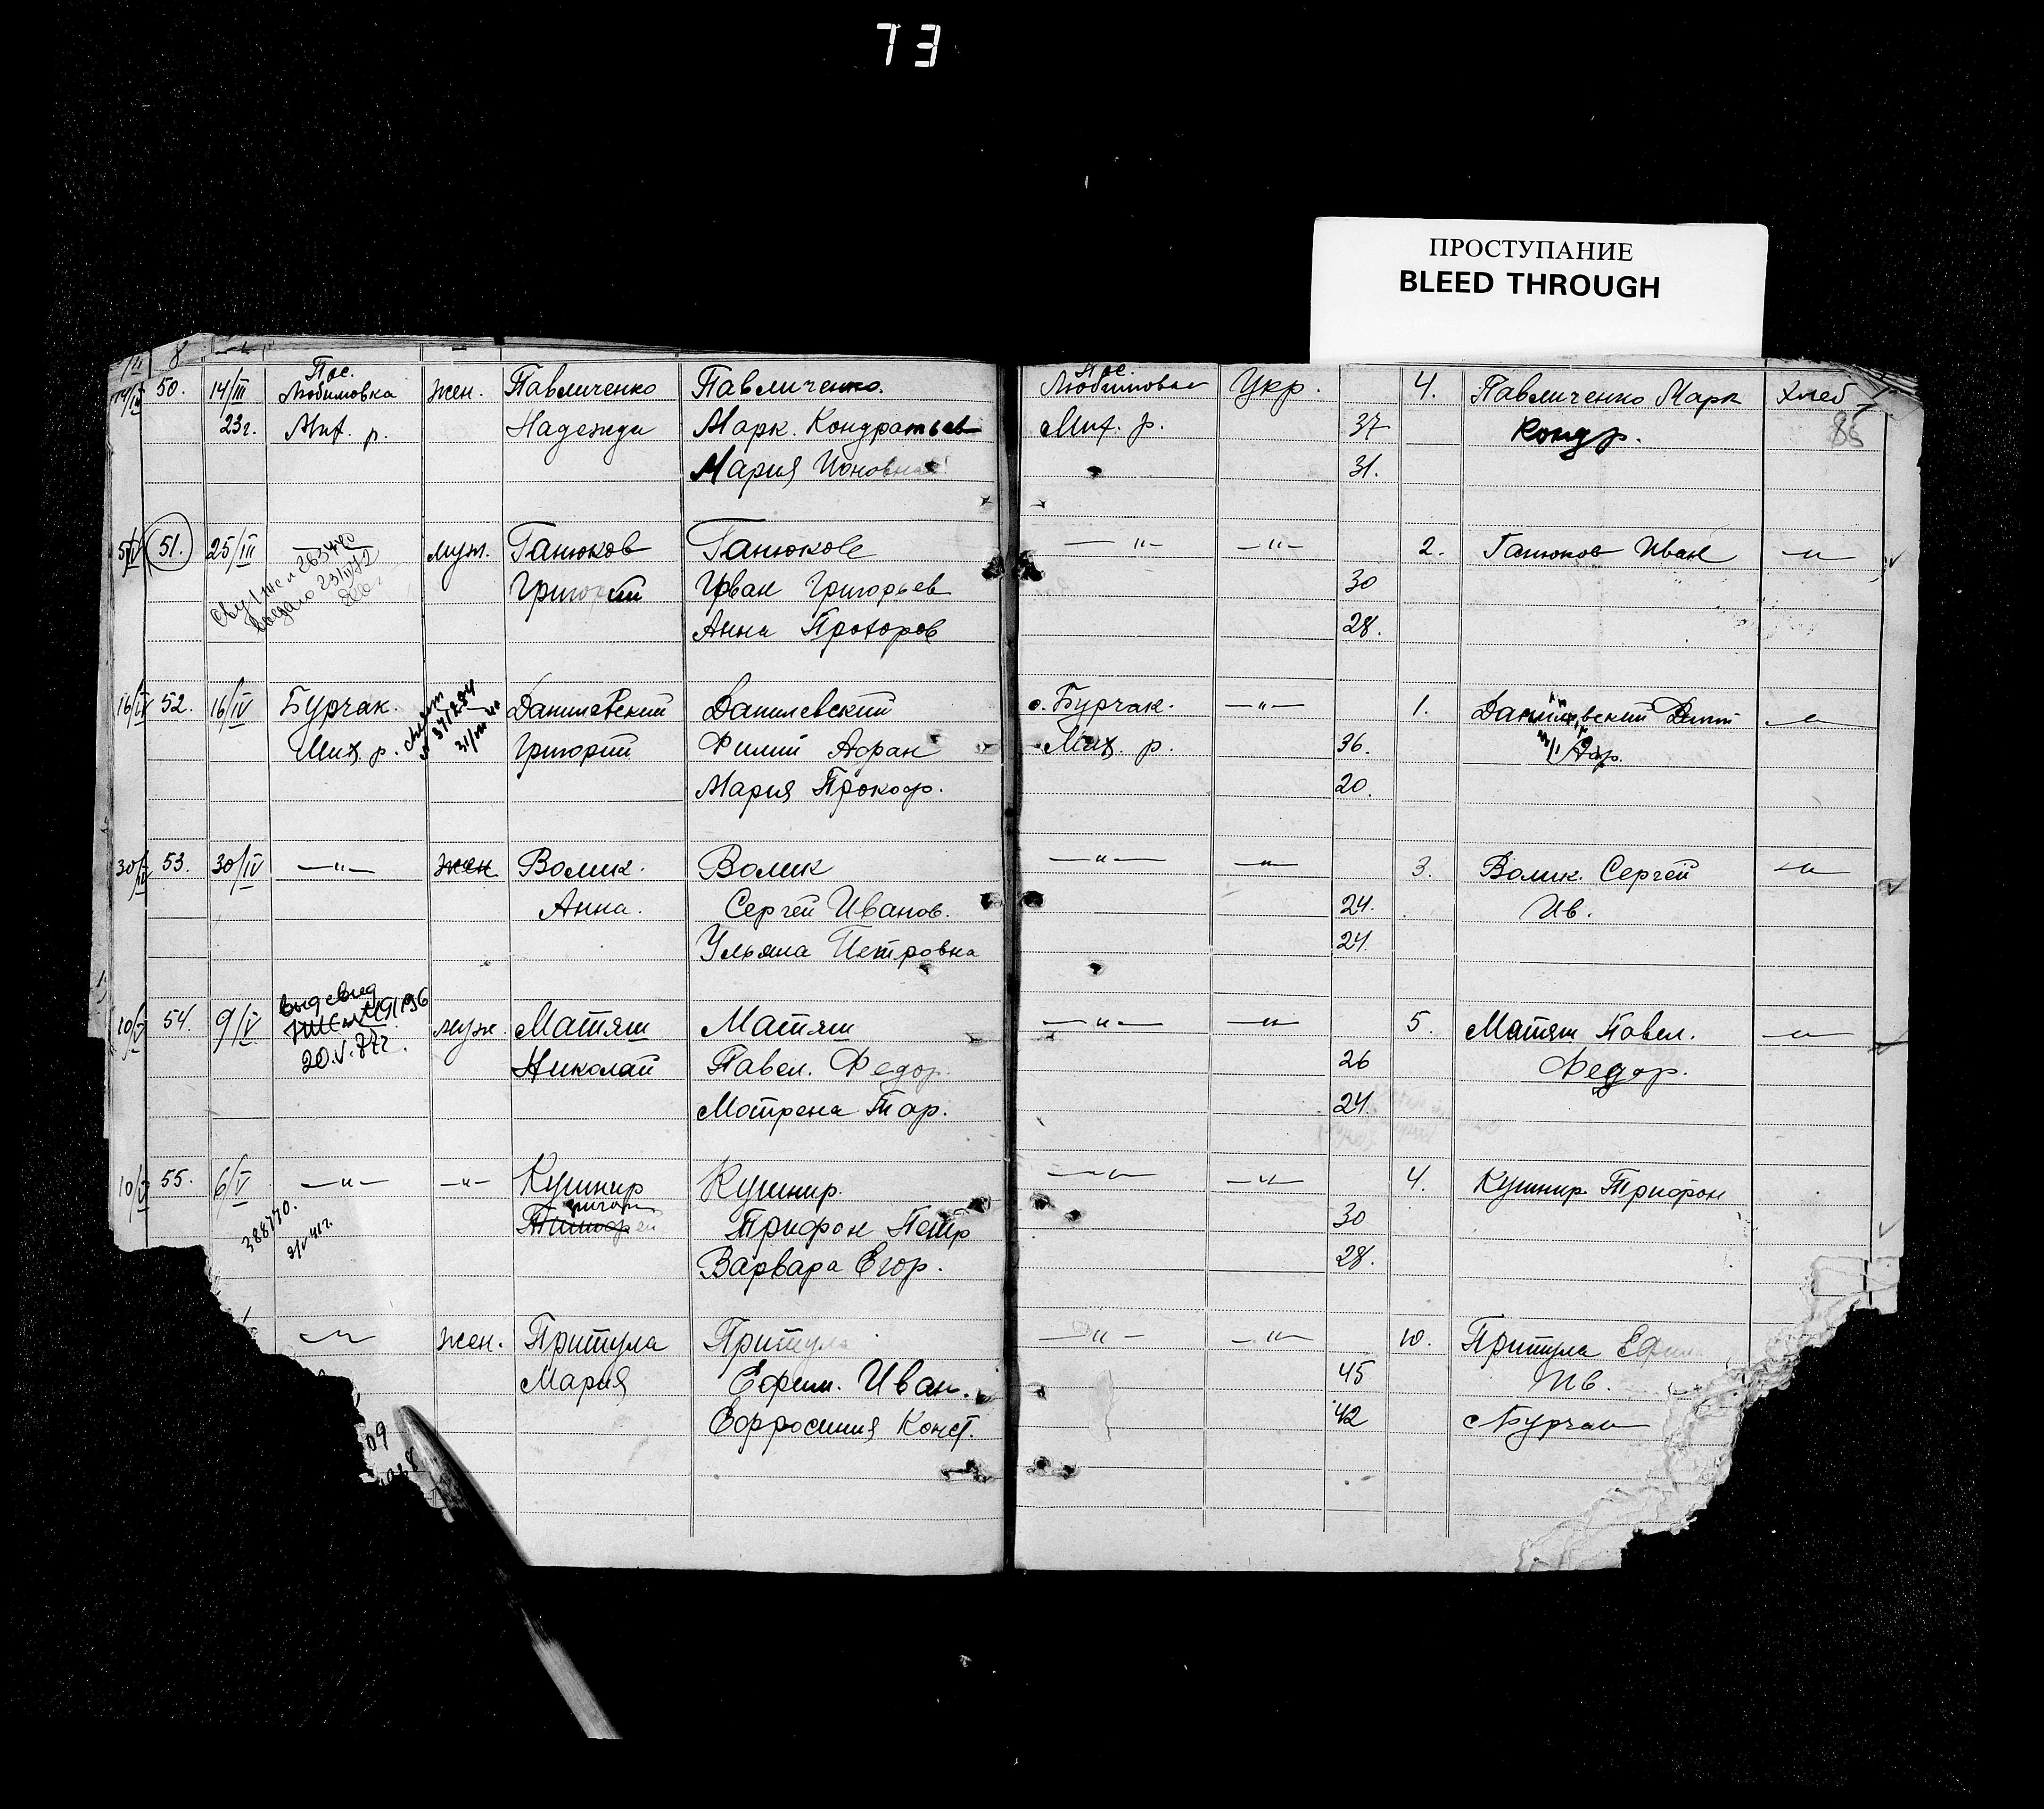 73
ПРОСТУПАНИЕ
BLEED THROUGH
8
50. 14/III Пос. Любимовка жен. Павличенко Павличенко. Пос. Любимовка Укр. 4. Павличенко Марк Хлеб
23г. Мих. р. Надежда Марк. Кондратьев Мих. р. 37 Кондр. 85
Мария Ионовна 31.
5/IV 51. 25/III муж. Ганюков Ганюкове — " — — " — 2. Ганюков Иван — " —
Григорий Иван Григорьев 30
Анна Прохоров 28.
16/IV 52. 16/IV Бурчак. Данилевский Данилевский с. Бурчак. — " — 1. Данилевский — " —
Мих. р. Григорий Филип Адриан Мих. р. 36.
Мария Прокоф. 20.
30/IV 53. 30/IV — " — жен Волик. Волик — " — — " — 3. Волик. Сергей — " —
Анна. Сергей Иванов. 24. Ив.
Ульяна Петровна 24.
10/V 54. 9/V муж. Матяш Матяш — " — — " — 5. Матяш Павел. — " —
20.V.77г. Николай Павел. Федор. 26 Федор.
Мотрена Тар. 24.
10/V 55. 6/V — " — — " — Кушнир Кушнир. — " — — " — 4. Кушнир Трифон
388770. Трифон Петр 30
Варвара Егор. 28.
— " — жен. Притула Притула — " — — " — 10. Притула Ефим
Мария Ефим. Иван. 45 Ив.
Ефросиния Конст. 42 с Бурчак
09